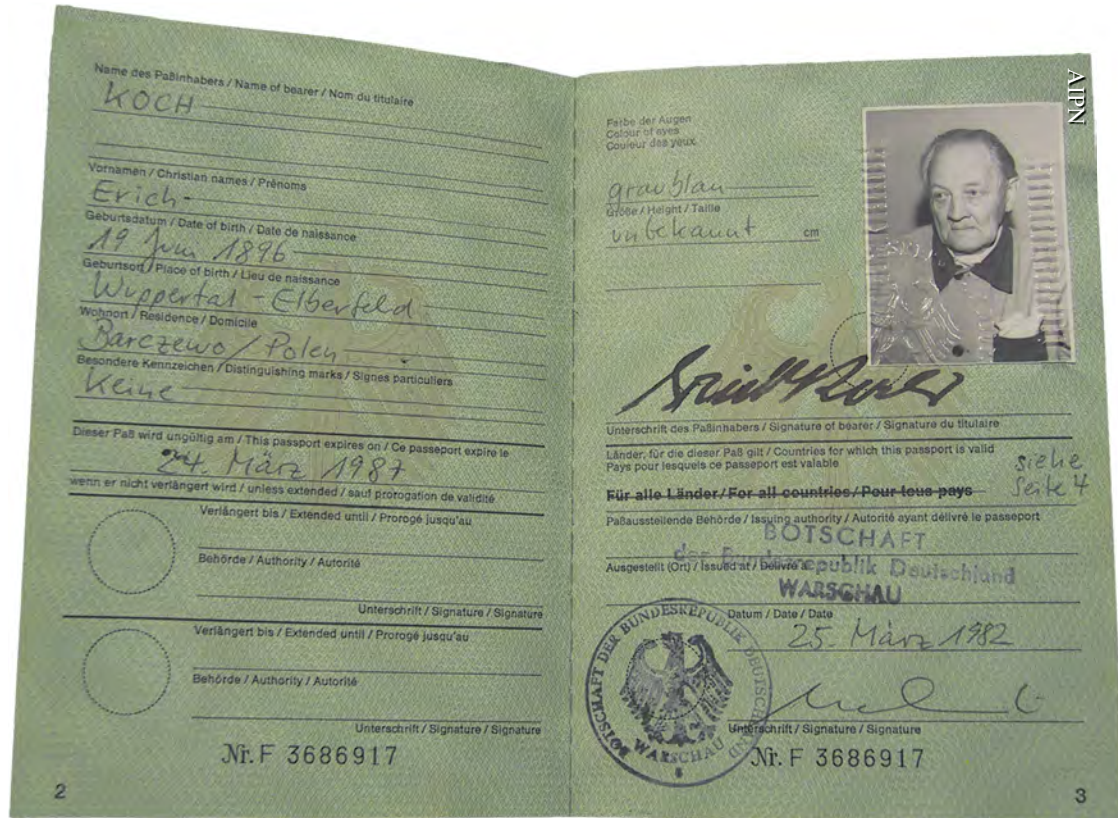 Name des Paßinhabers / Name of bearer / Nom du titulaire
KOCH
Vornamen / Christian names / Prénoms
Erich
Geburtsdatum / Date of birth / Date de naissance
19 Juni 1896
Geburtsort / Place of birth / Lieu de naissance
Wuppertal - Elberfeld
Wohnort / Residence / Domicile
Barczewo / Polen
Besondere Kennzeichen / Distinguishing marks / Signes particuliers
Keine
Dieser Paß wird ungültig am / This passport expires on / Ce passeport expire le
24. März 1987
wenn er nicht verlängert wird / unless extended / sauf prorogation de validité
Verlängert bis / Extended until / Prorogé jusqu'au
Behörde / Authority / Autorité
Unterschrift / Signature / Signature
Verlängert bis / Extended until / Prorogé jusqu'au
Behörde / Authority / Autorité
Unterschrift / Signature / Signature
Nr. F 3686917
2
AIPN
Farbe der Augen
Colour of eyes
Couleur des yeux
graublau
Größe / Height / Taille
unbekannt cm
Erich Koch
Unterschrift des Paßinhabers / Signature of bearer / Signature du titulaire
Länder, für die dieser Paß gilt / Countries for which this passport is valid
Pays pour lesquels ce passeport est valable
siehe
Seite 4
Für alle Länder / For all countries / Pour tous pays
Paßausstellende Behörde / Issuing authority / Autorité ayant délivré le passeport
BOTSCHAFT
der Bundesrepublik Deutschland
Ausgestellt (Ort) / Issued at / Délivré à
WARSCHAU
Datum / Date / Date
25. März 1982
BOTSCHAFT DER BUNDESREPUBLIK DEUTSCHLAND
WARSCHAU
Unterschrift / Signature / Signature
Nr. F 3686917
3